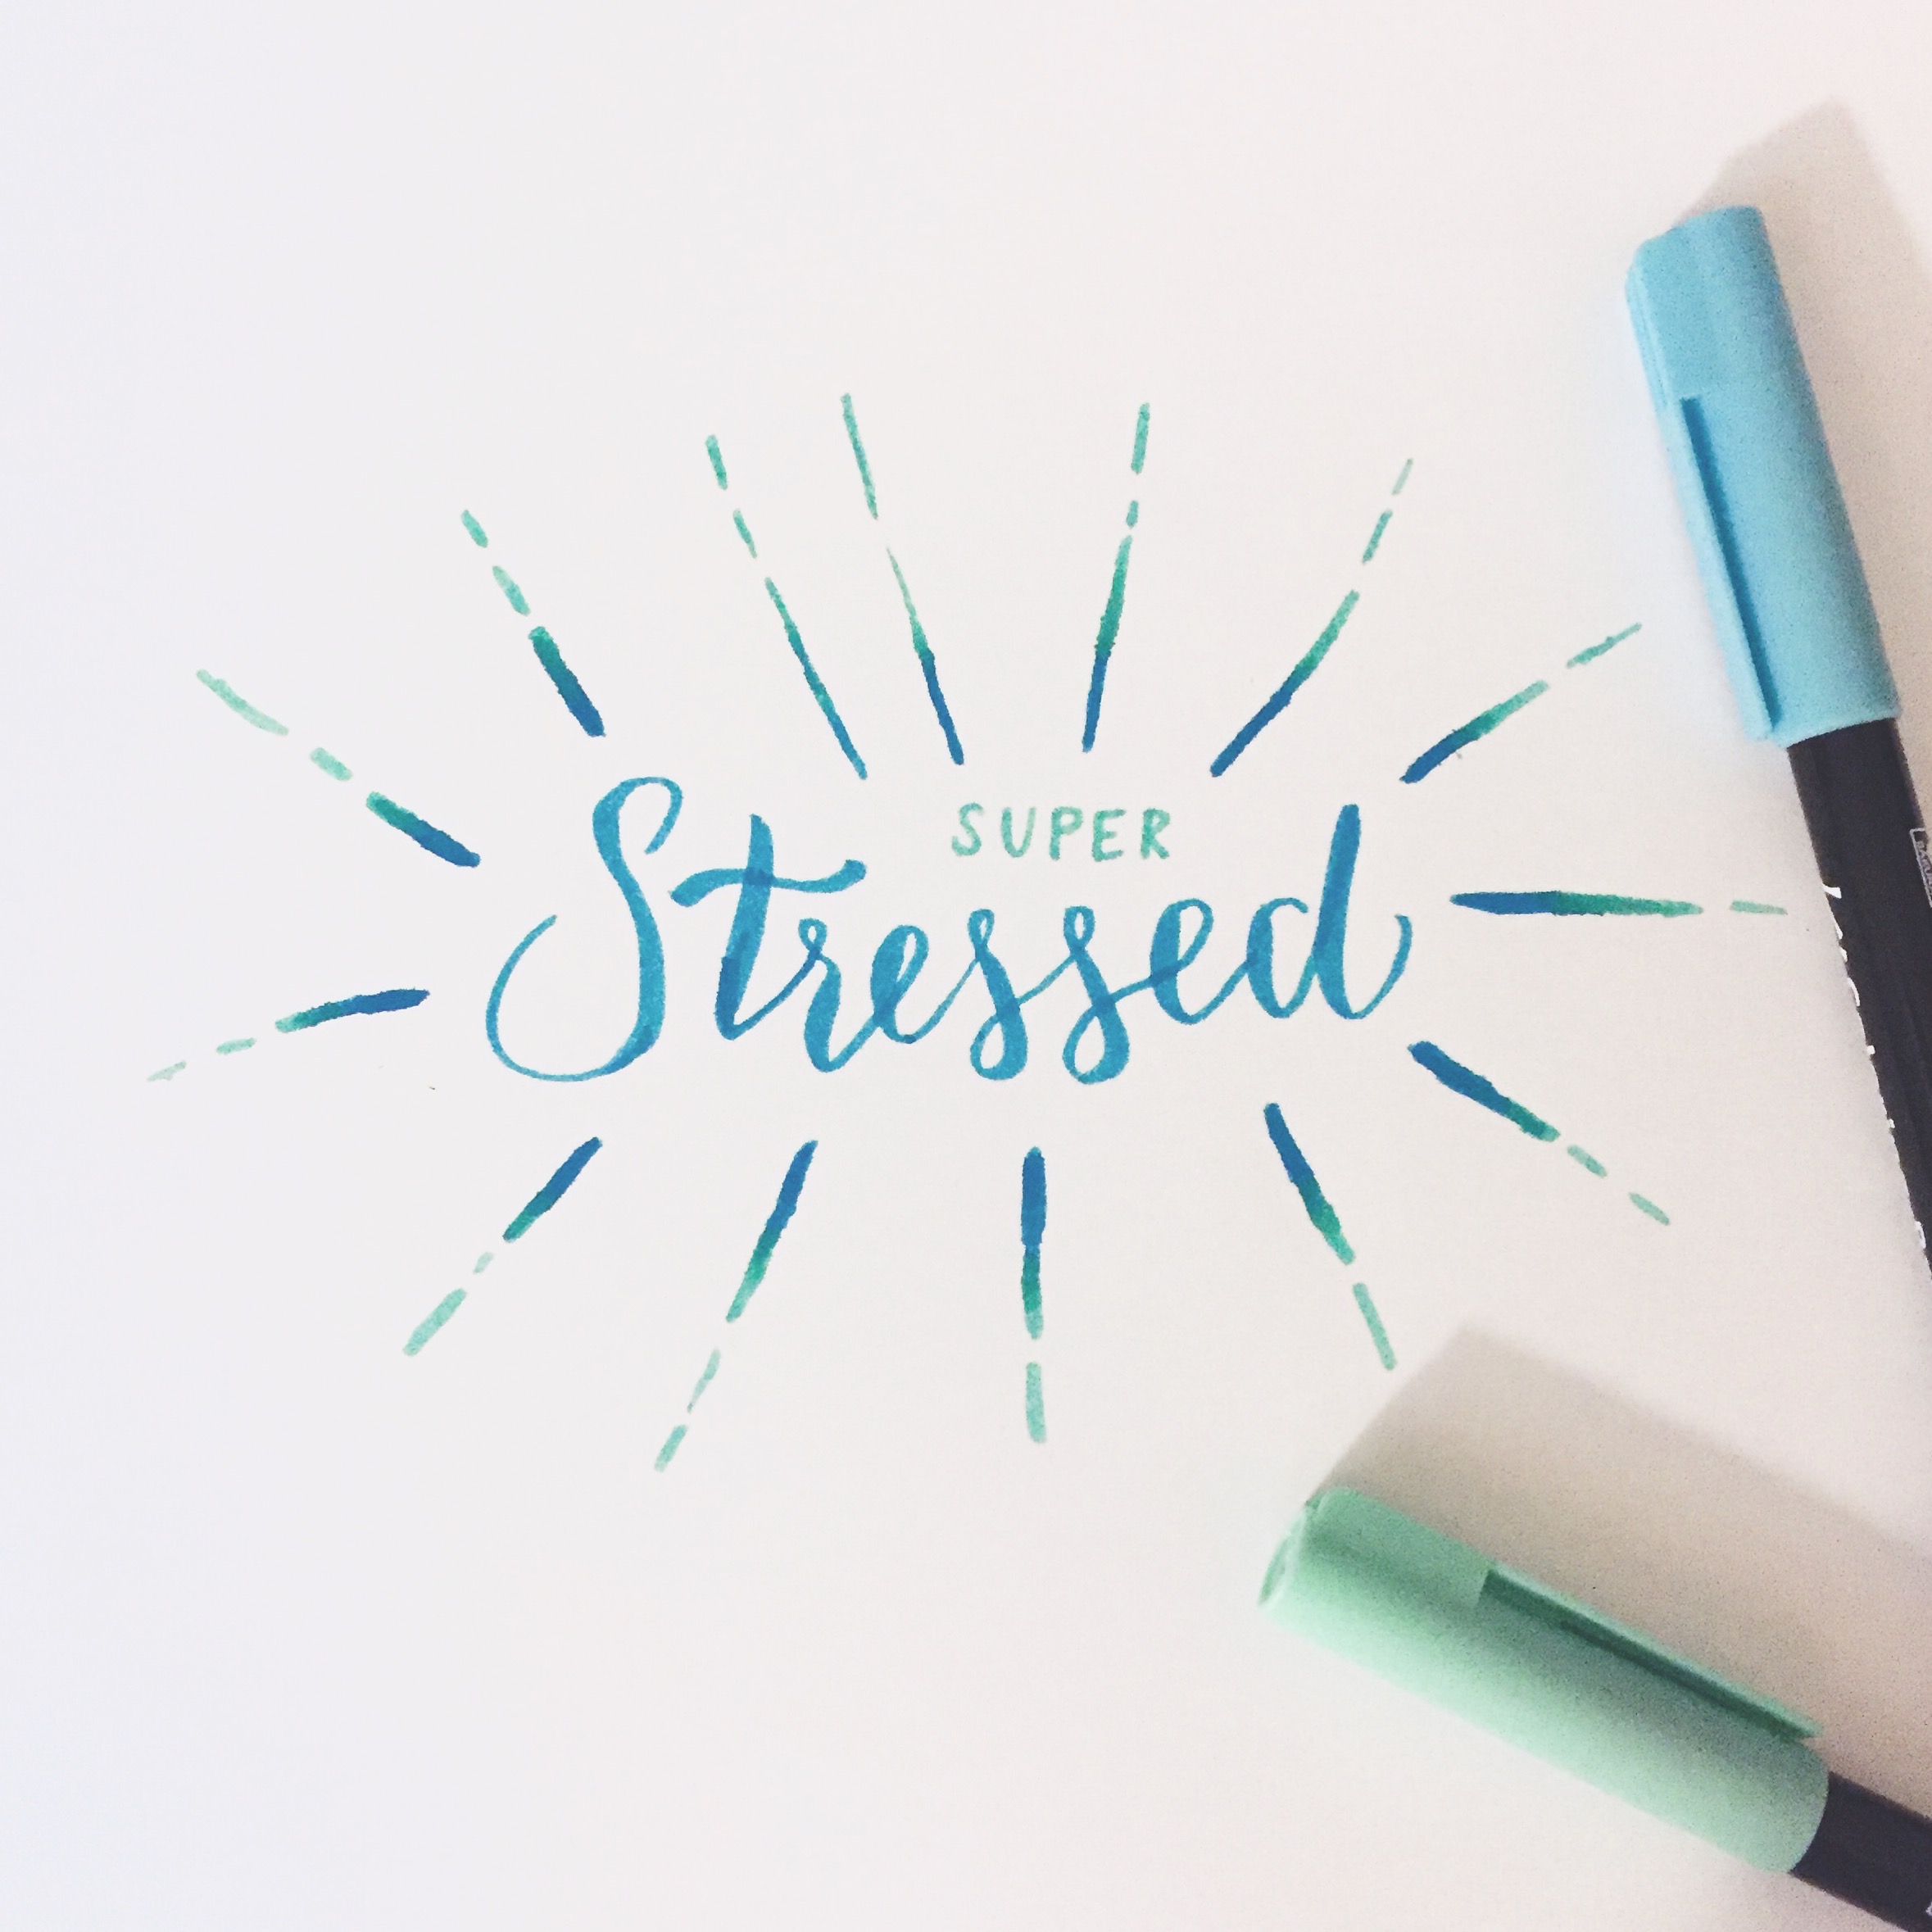 SUPER
Stressed